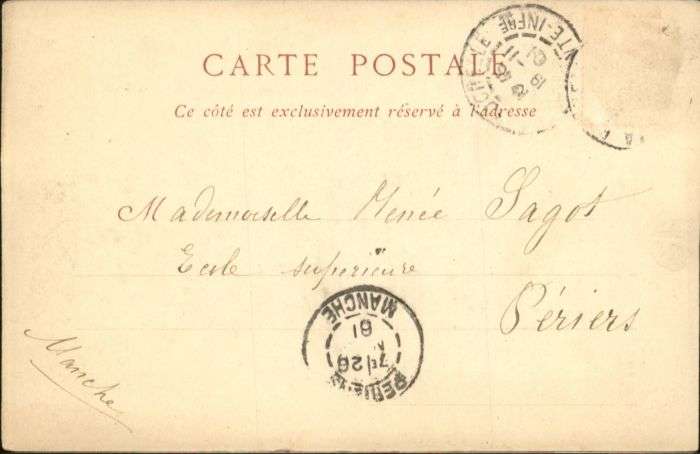 CARTE POSTALE
Ce côté est exclusivement réservé à l'adresse
Mademoiselle Renée Sagot
Ecole supérieure
Périers
Manche
MANCHE
VTE-INFRE